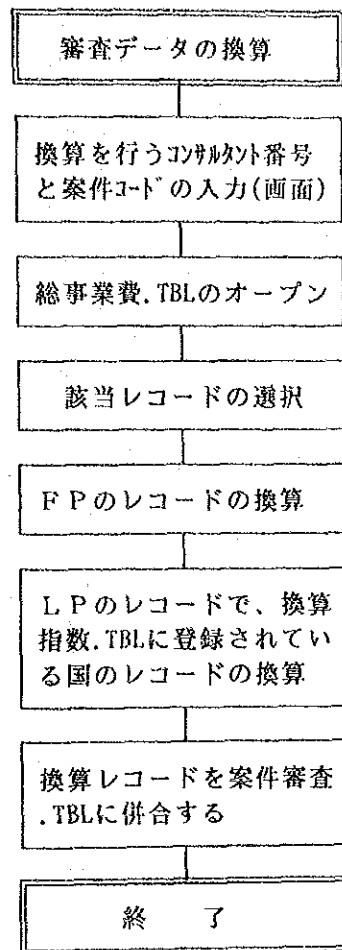 審査データの換算
換算を行うｺﾝｻﾙﾀﾝﾄ番号
と案件ｺｰﾄﾞの入力(画面)
総事業費.TBLのオープン
該当レコードの選択
ＦＰのレコードの換算
ＬＰのレコードで、換算
指数.TBLに登録されてい
る国のレコードの換算
換算レコードを案件審査
.TBLに併合する
終　了